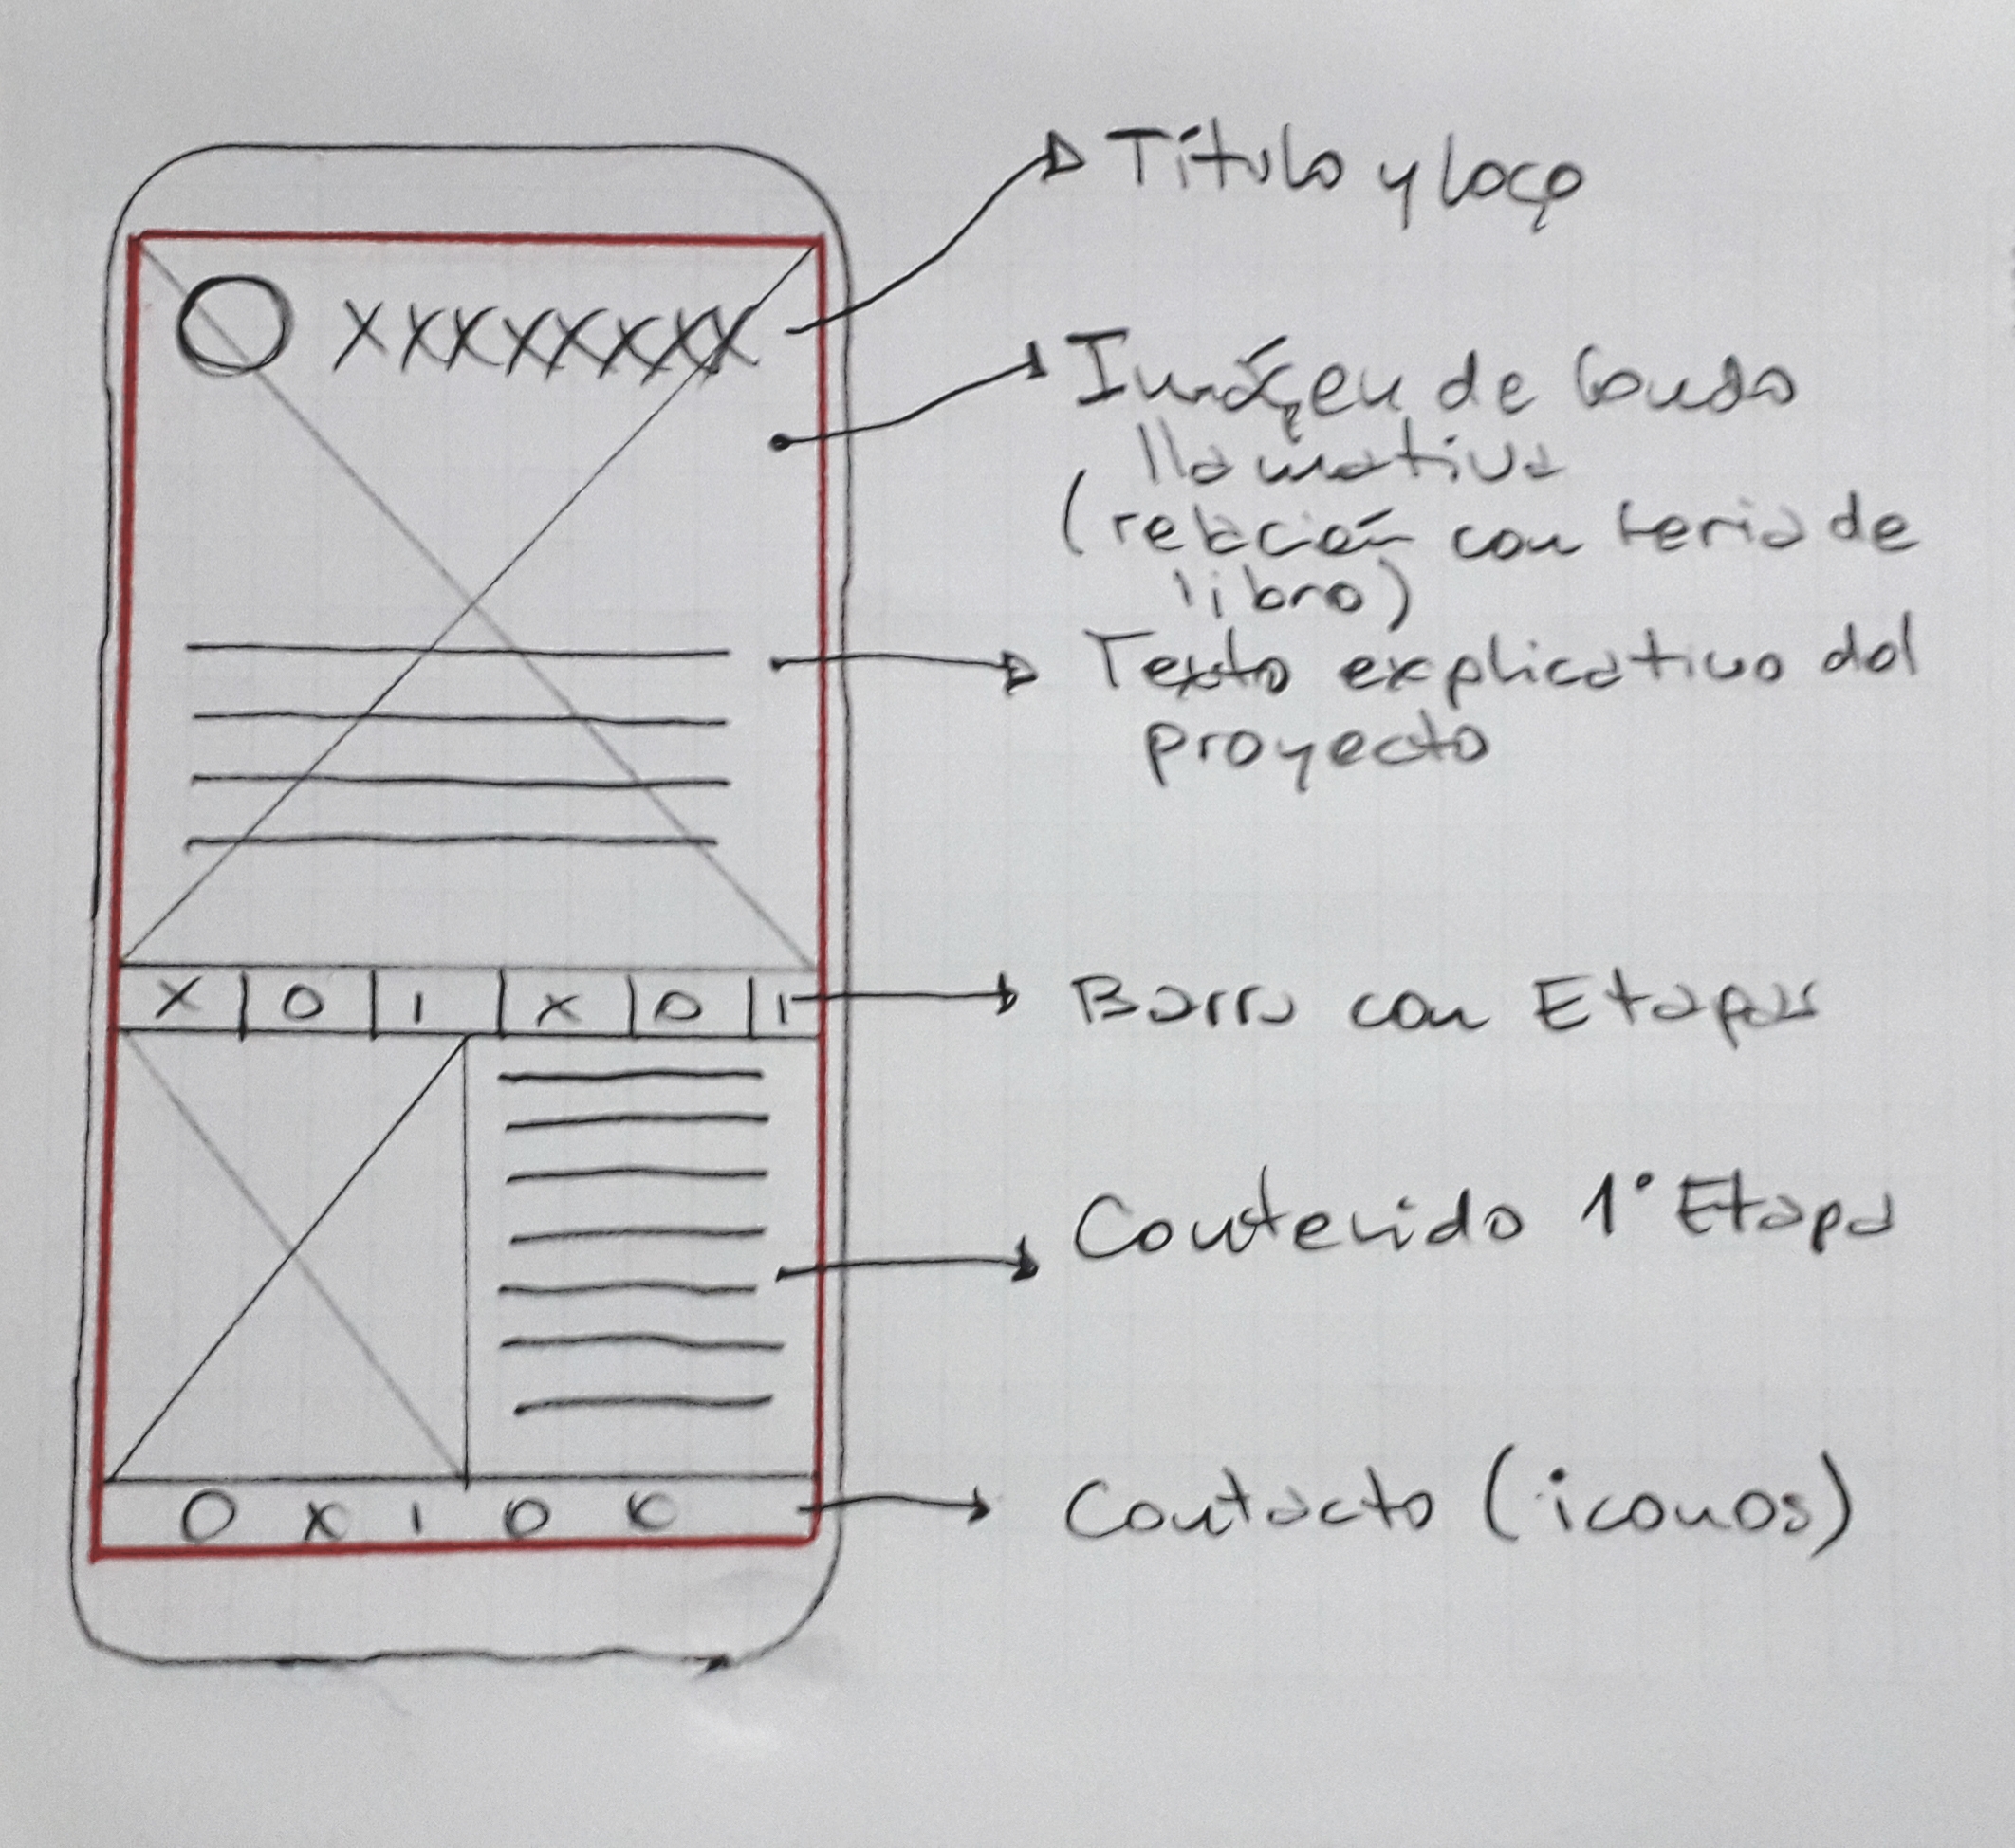 XXXXXXXXX
Título y logo
Imágen de fondo
llamativa
(relación con feria de
libro)
Texto explicativo del
proyecto
X | O | I | X | O | I
Barra con Etapas
Contenido 1° Etapa
O X I O
Contacto (iconos)